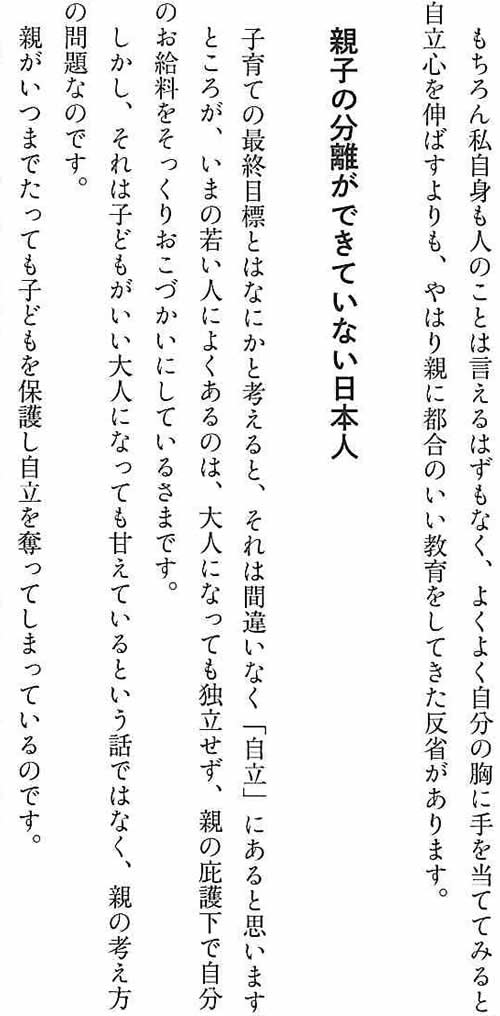 もちろん私自身も人のことは言えるはずもなく、よくよく自分の胸に手を当ててみると
自立心を伸ばすよりも、やはり親に都合のいい教育をしてきた反省があります。
親子の分離ができていない日本人
子育ての最終目標とはなにかと考えると、それは間違いなく「自立」にあると思います
ところが、いまの若い人によくあるのは、大人になっても独立せず、親の庇護下で自分
のお給料をそっくりおこづかいにしているさまです。
しかし、それは子どもがいい大人になっても甘えているという話ではなく、親の考え方
の問題なのです。
親がいつまでたっても子どもを保護し自立を奪ってしまっているのです。